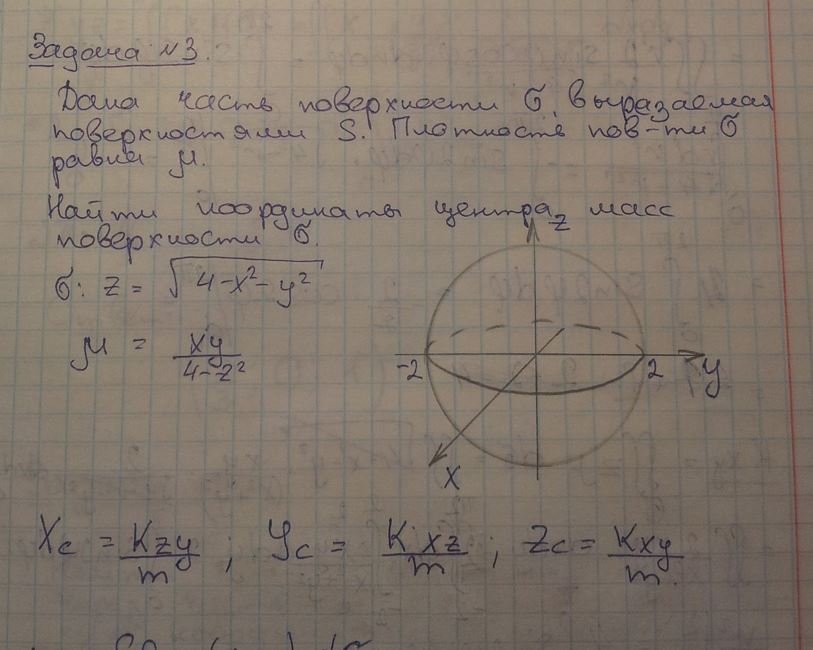 Задача №3.
Дана часть поверхности σ, вырезаемая
поверхностями S. Плотность пов-ти σ
равна μ.
Найти координаты центра масс
поверхности σ.
σ: z = √4-x²-y²
μ = xy/4-z²
z
-2
2
y
x
Xc = Kzy/m ; Yc = Kxz/m ; Zc = Kxy/m.